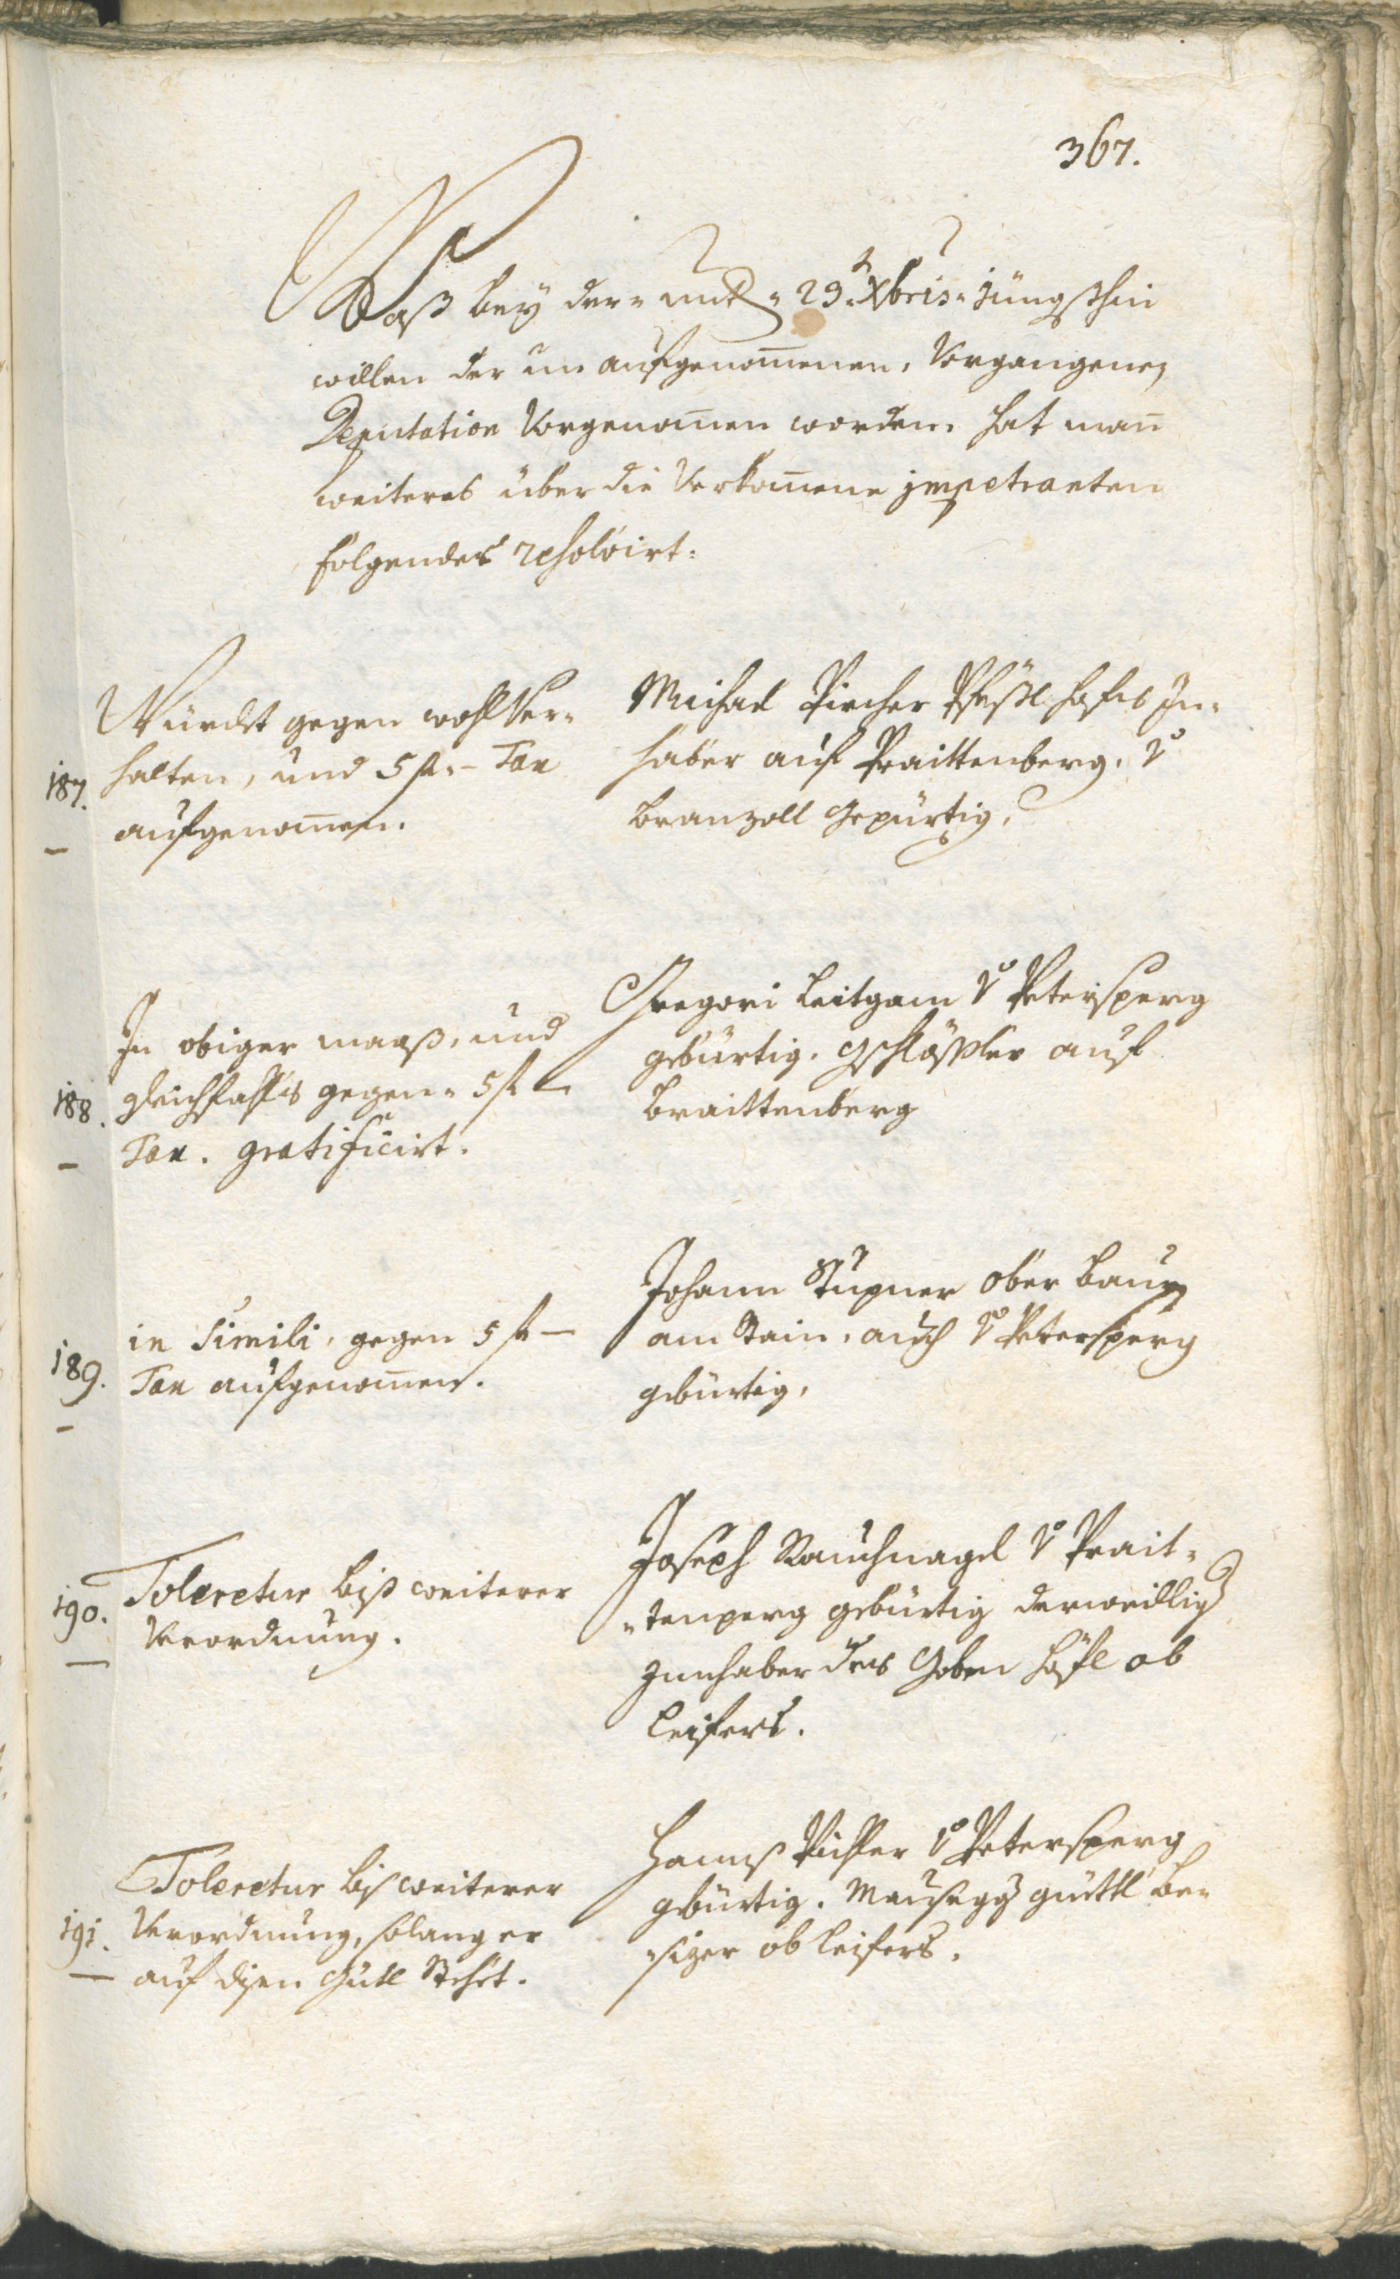 367.
Waß bey der unterm 29.t Xbris jüngsthin
willen der un aufgenom̄enen, Vorgangenen
Deputation Vorgenom̄en worden, hat man̄
weiteres über die Verkom̄ene jmpetranten
folgendes resolvirt:
Würdet gegen wohl Ver-
187. halten, und 5 fl. - Tax
aufgenom̄en.
Michael Pircher hofes In-
haber auf Praittenberg, v
branzoll Gepürtig.
In obiger maaß, und
188. gleichfahls gegen 5 fl -
Tax. gratificirt.
Gregori Leitgam v Petersperg
gebürtig. Gschlößler auf
Braittenberg
in Simili, gegen 5 fl -
189. Tax aufgenom̄en.
Johann Stupner ober baur
am Rain, auch v Petersperg
gebürtig.
190. Toleretur biß weiterer
Verordnung.
Joseph Rauchnagel v Prait-
-tenperg gebürtig derweillig
Innhaber des höfl ob
Leifers.
Toleretur bis weiterer
191. Verordnung, solang er
auf disen Gütl Stehet.
Hannß Pichler v Petersperg
gebürtig. Mausegg güettl be-
-sizer ob Leifers.